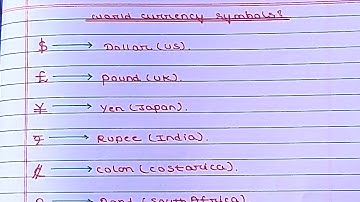 World currency symbols?
$ → Dollar (US).
£ → pound (UK).
¥ → Yen (Japan).
₹ → Rupee (India).
₡ → colon (costarica).
(South Africa)